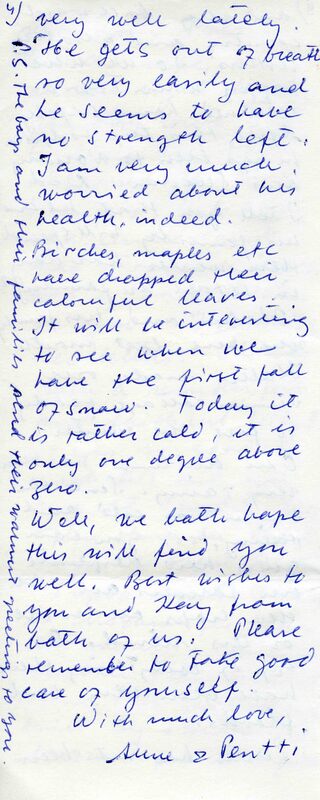 5) very well lately.
He gets out of breath
so very easily and
he seems to have
no strength left.
I am very much
worried about his
health, indeed.
Birches, maples etc
have dropped their
colourful leaves.
It will be interesting
to see when we
have the first fall
of snow. Today it
is rather cold, it is
only one degree above
zero.
Well, we both hope
this will find you
well. Best wishes to
you and Kay from
both of us. Please
remember to take good
care of yourself.
With much love,
Anne & Pentti
P.S. The boys and their families send their warmest greetings to you.